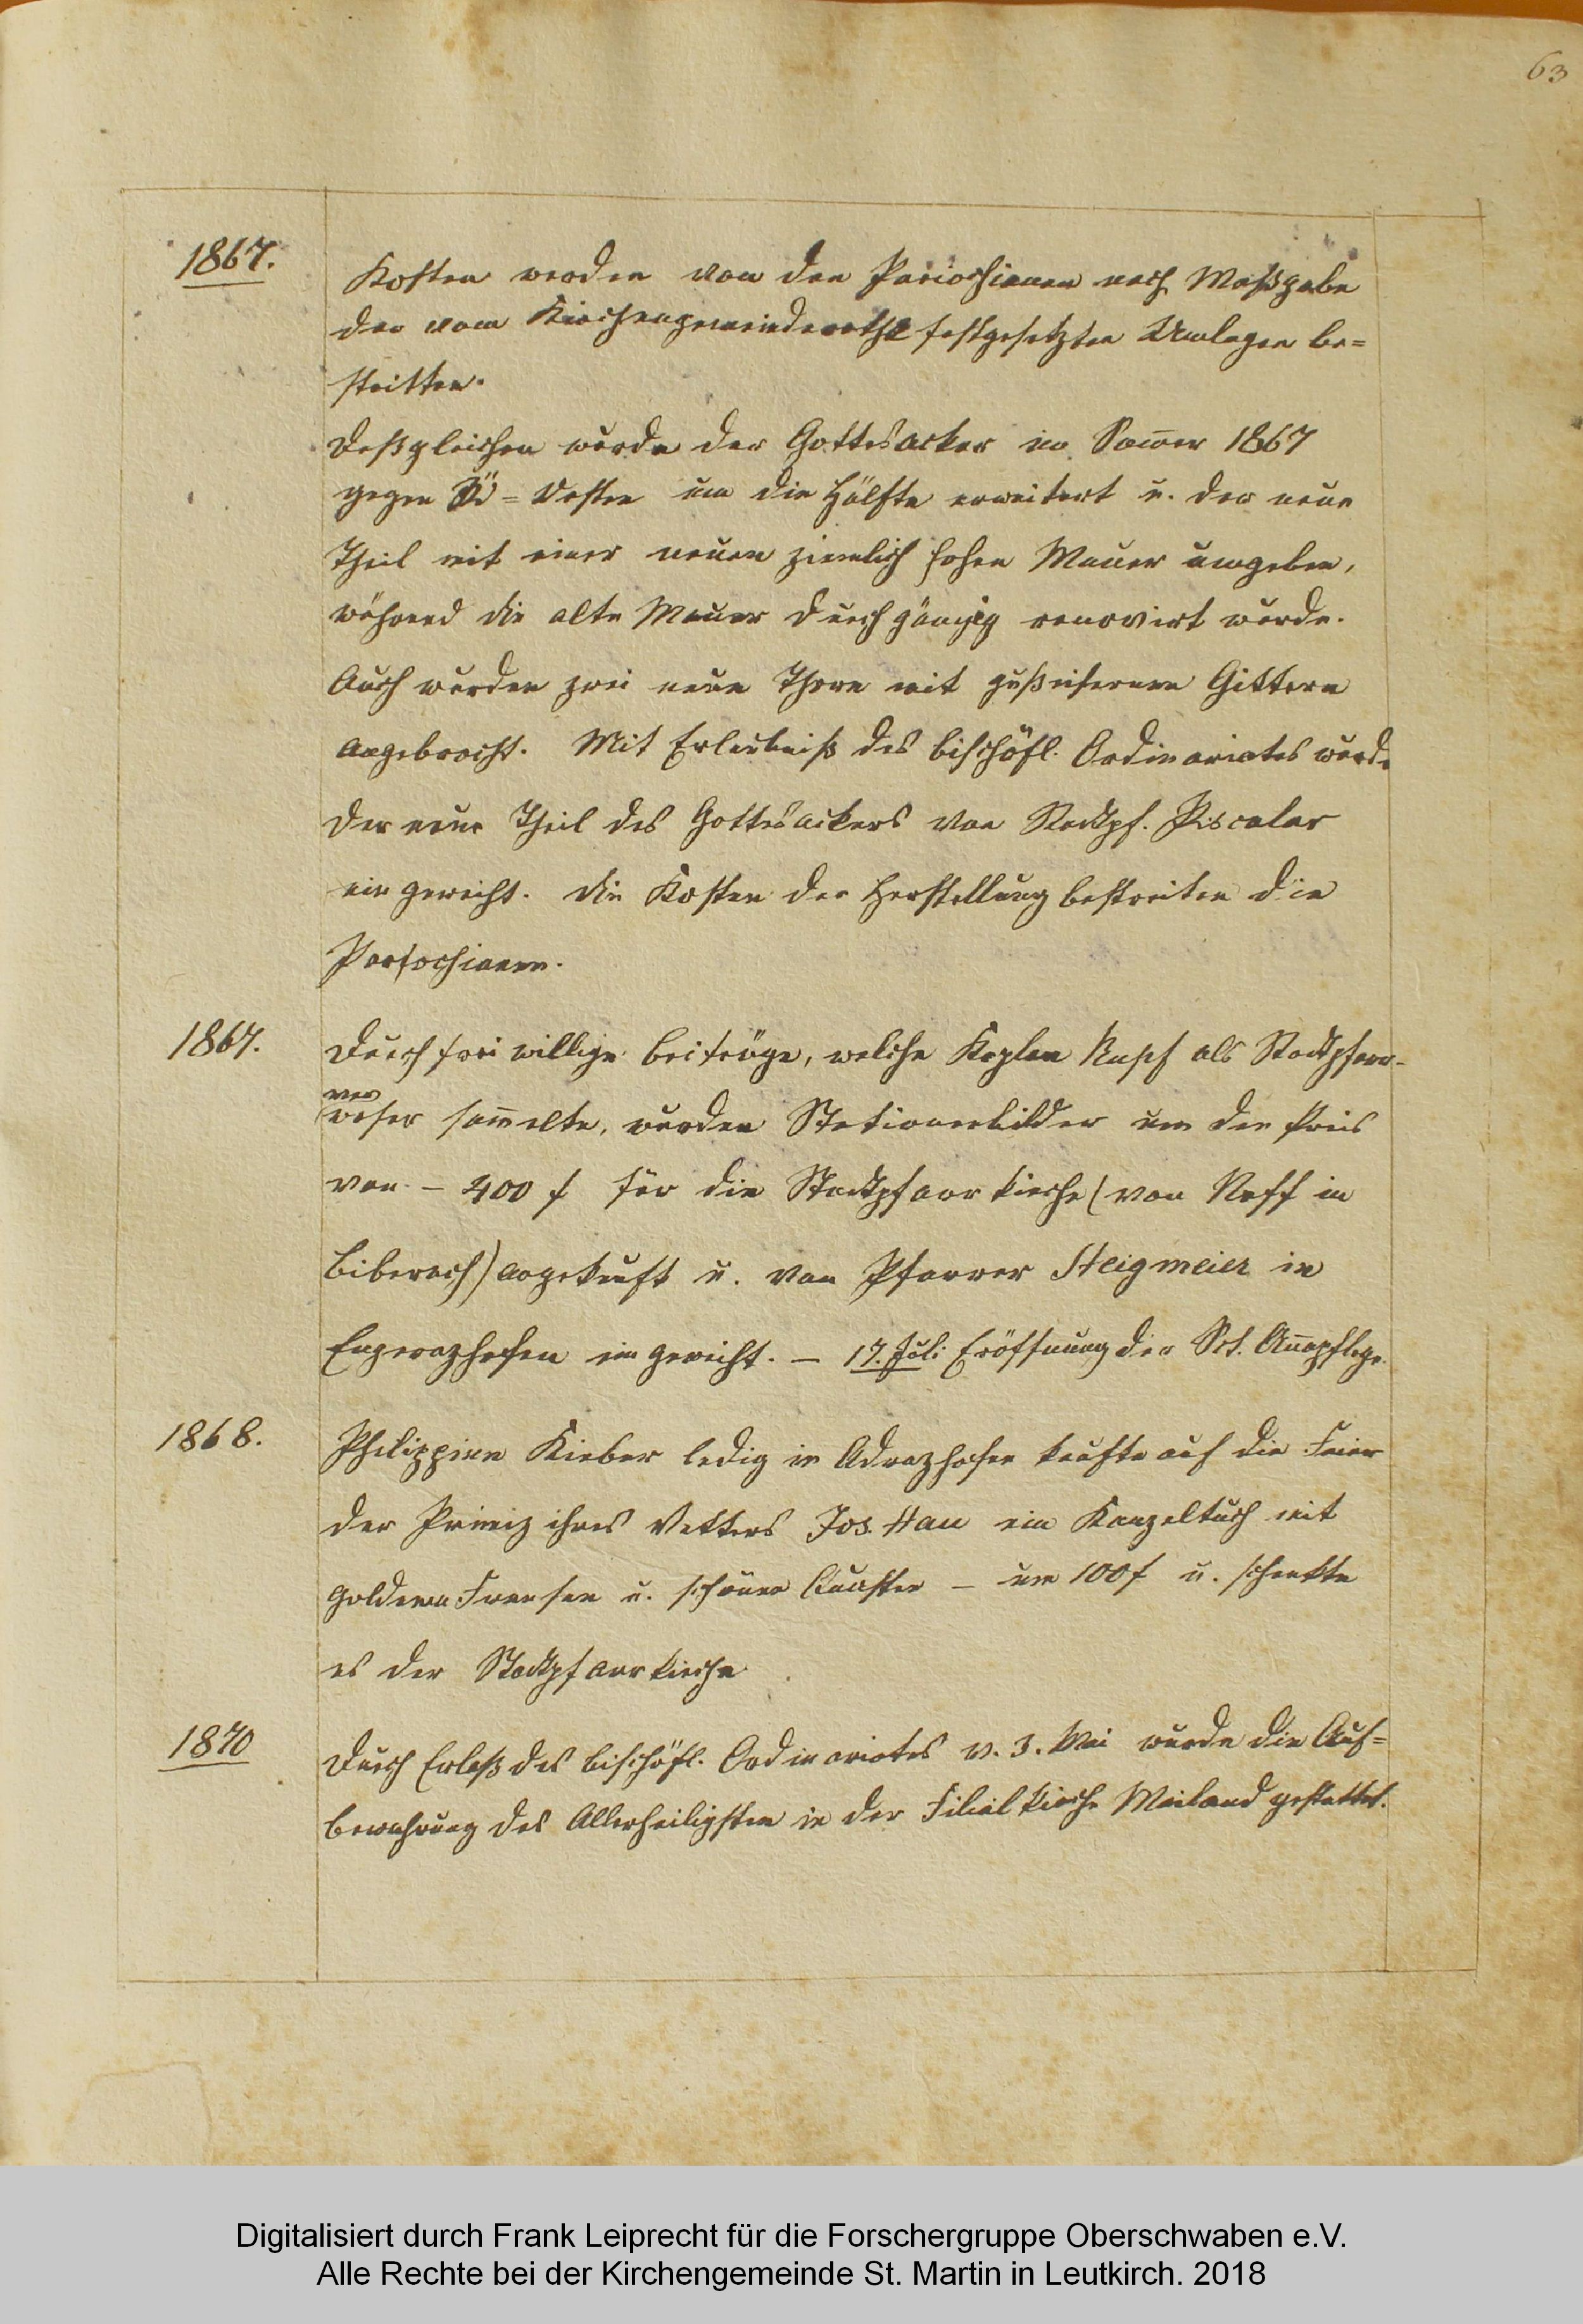 63
1867.
Kosten werden von den Pariochianen nach Maßgabe
der vom Kirchengemeinderathe festgesetzten Umlagen be=
stritten.
Deßgleichen wurde der Gottesacker im Som̅er 1867
gegen Osten um die Hälfte erweitert u. der neue
Theil mit einer neuen ziemlich hohen Mauer umgeben,
während die alte Mauer durchgängig renovirt wurde.
Auch wurden zwei neue Thore mit gußeisernen Gittern
angebracht. Mit Erlaubniß des bischöfl. Ordinariates wurde
der neue Theil des Gottesackers von Stadtpf. Piscalar
eingeweiht. Die Kosten der Herstellung bestreiten die
Parochianen.
1867.
Durch freiwillige Beiträge, welche Kaplan Rupf als Stadtpfarr-
ver
weser sam̅elte, wurden Stationenbilder um den Preis
von - 400 f für die Stadtpfarrkirche (von Neff in
Biberach) angekauft u. von Pfarrer Steigmeier in
Engerazhofen eingeweiht. - 17. Juli Eröffnung der Sct. An̅apflege.
1868.
Philippine Kieber ledig in Adrazhofen kaufte auf die Feier
der Primiz ihres Vetters Jos. Hau ein Kanzeltuch mit
goldenen Fransen u. schönen Quasten - um 100 f u. schenkte
es der Stadtpfarrkirche
1870
Durch Erlaß des bischöfl. Ordinariates v. 3. Mai wurde die Auf=
bewahrung des Allerheiligsten in der Filialkirche Mailand gestattet.
Digitalisiert durch Frank Leiprecht für die Forschergruppe Oberschwaben e.V.
Alle Rechte bei der Kirchengemeinde St. Martin in Leutkirch. 2018